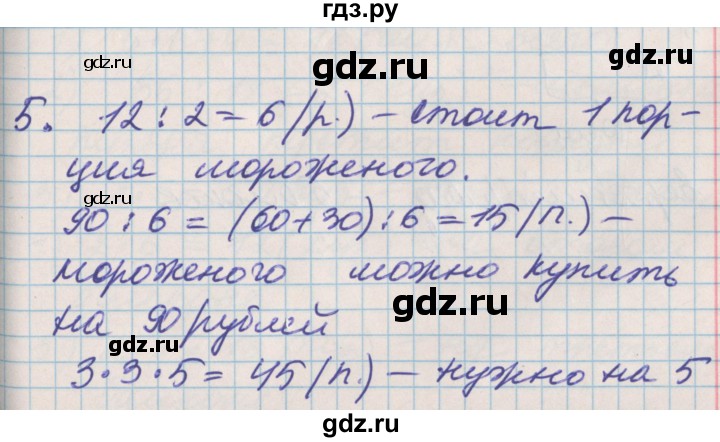 гдз.ру
gdz.ru
gdz.ru
gdz.ru
5. 12 : 2 = 6 (р.) – стоит 1 пор-
ция мороженого.
gdz.ru
gdz.ru
90 : 6 = (60+30) : 6 = 15 (п.) –
мороженого можно купить
gdz.ru
на 90 рублей
gdz.ru
gdz.ru
3·3·5 = 45 (п.) – нужно на 5
gdz.ru